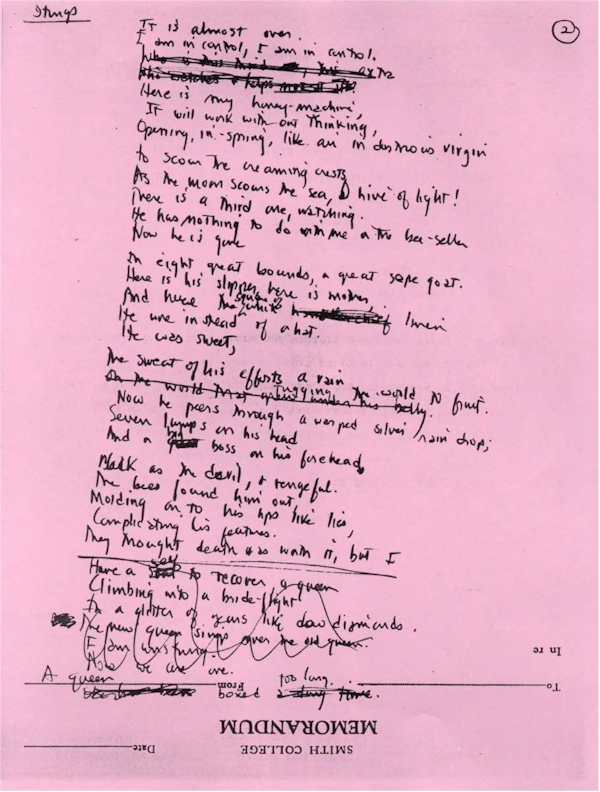 Stings
2
It is almost over.
I am in control, I am in control.
Who is this third
she watches & helps
Here is my honey-machine,
It will work without thinking,
Opening, in spring, like an industrious virgin
to scour the creaming crests
As the moon scours the sea, a hive of light!
There is a third one, watching.
He has nothing to do with me or the bee-seller
Now he is gone
In eight great bounds, a great scape goat.
Here is his slipper, here is another,
And here the square of white linen
He wore instead of a hat.
He was sweet,
The sweat of his efforts a rain
Tugging the world to fruit.
On the world that under his belly.
Now he peers through a warped silver rain drop;
Seven lumps on his head
And a big boss on his forehead,
Black as the devil, & vengeful.
The bees found him out,
Molding on to his lips like lies,
Complicating his features.
They thought death was worth it, but I
Have a self to recover, a queen
Climbing into a bride-flight
In a glitter of years like dew diamonds.
The new queen sings over the old queen.
I am unstrung.
Now we are one.
A queen boxed too long.
a long time.
In re
To
From
MEMORANDUM
SMITH COLLEGE
Date